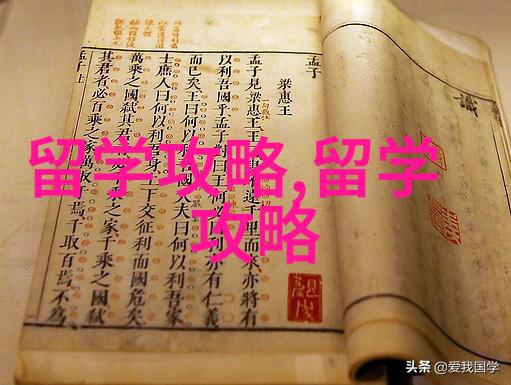 留学攻略,留学
攻略
識
孟子
梁惠王
孟子見梁惠王王遠千里而來亦將有
以利吾國乎孟子對曰王何必曰利亦有仁義
而已矣王曰何以利吾國大夫曰何以利吾家
士庶人曰何以利吾身上下交征利而國危矣
萬乘之國弑其君者千乘之家千乘之國弑
其君者必百乘之家萬取千焉千取百焉不為
孟子上
头条 @爱我国学